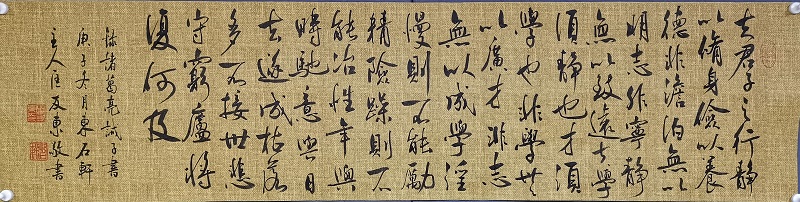 夫君子之行静
以脩身儉以養
德非澹泊無以
明志非寧静
無以致遠夫學
須静也才須
學也非學無
以廣才非志
無以成學淫
慢則不能勵
精險躁則不
能冶性年與
時馳意與日
去遂成枯落
多不接世悲
守窮廬將
復何及
諸葛亮誡子書
庚子冬月東石軒
主人友東敬書